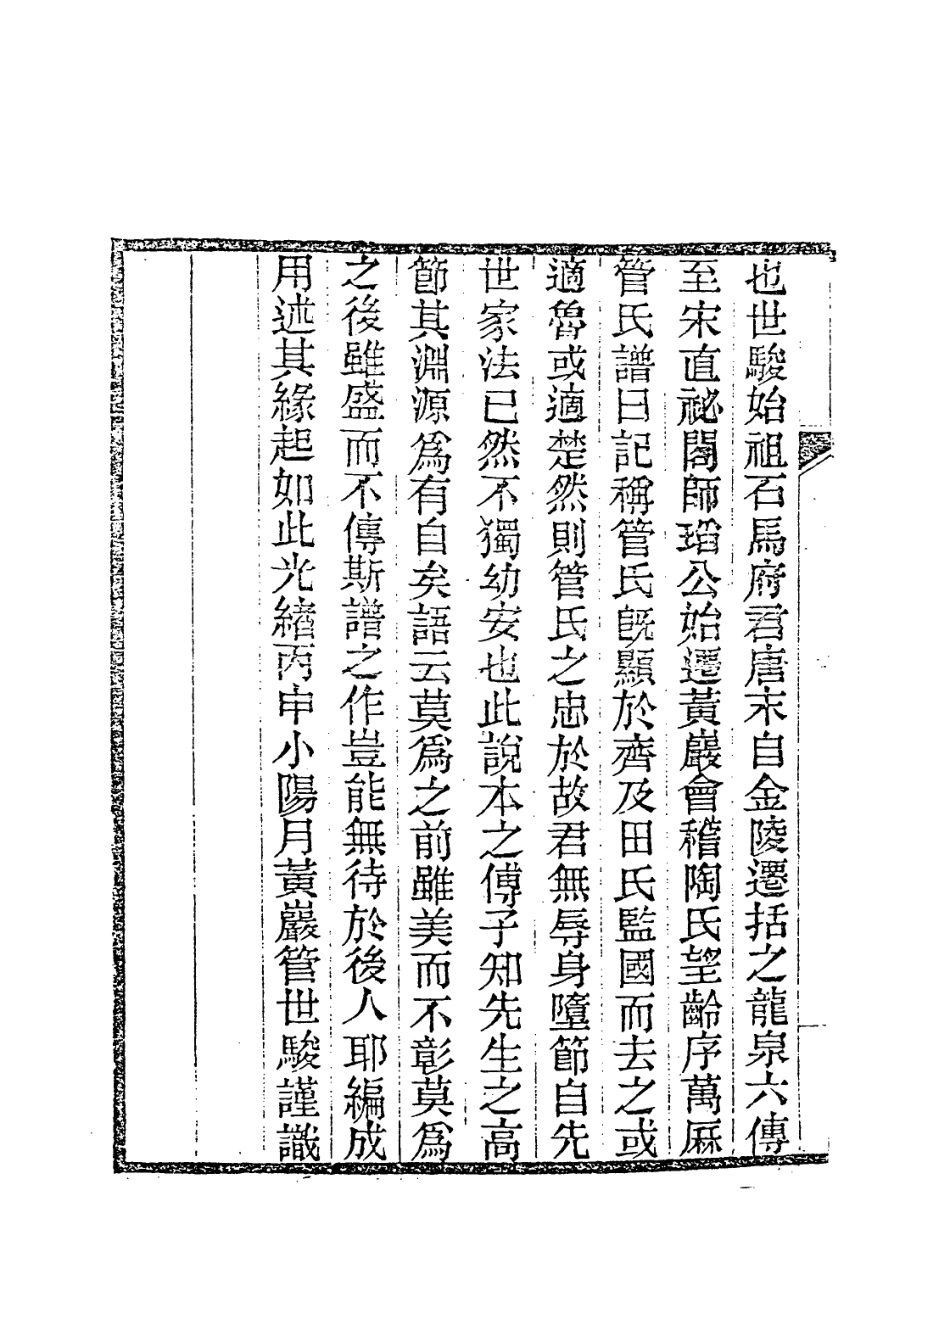 也世駿始祖石馬府君唐末自金陵遷括之龍泉六傳
至宋直祕閣師瑫公始遷黃巖會稽陶氏望齡序萬厤
管氏譜曰記稱管氏旣顯於齊及田氏監國而去之或
適魯或適楚然則管氏之忠於故君無辱身墮節自先
世家法已然不獨幼安也此說本之傅子知先生之高
節其淵源爲有自矣語云莫爲之前雖美而不彰莫爲
之後雖盛而不傳斯譜之作豈能無待於後人耶編成
用述其緣起如此光緒丙申小陽月黃巖管世駿謹識